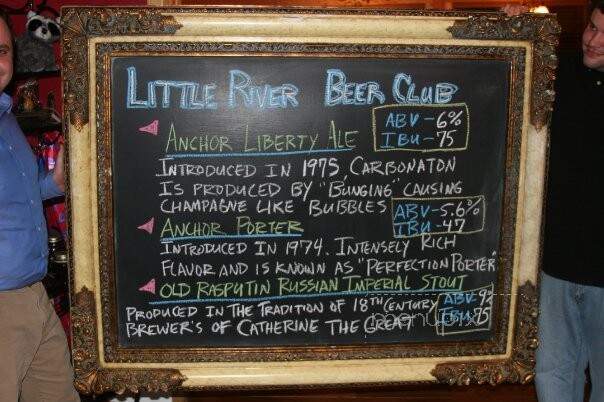 LITTLE RIVER BEER CLUB
ANCHOR LIBERTY ALE
ABV-6%
IBU-75
INTRODUCED IN 1975, CARBONATON
IS PRODUCED BY "BUNGING" CAUSING
CHAMPAGNE LIKE BUBBLES
ABV-5.6%
IBU-47
ANCHOR PORTER
INTRODUCED IN 1974. INTENSELY RICH
FLAVOR AND IS KNOWN AS "PERFECTION PORTER"
OLD RASPUTIN RUSSIAN IMPERIAL STOUT
PRODUCED IN THE TRADITION OF 18TH CENTURY
BREWER'S OF CATHERINE THE GREAT
ABV-9%
IBU-75